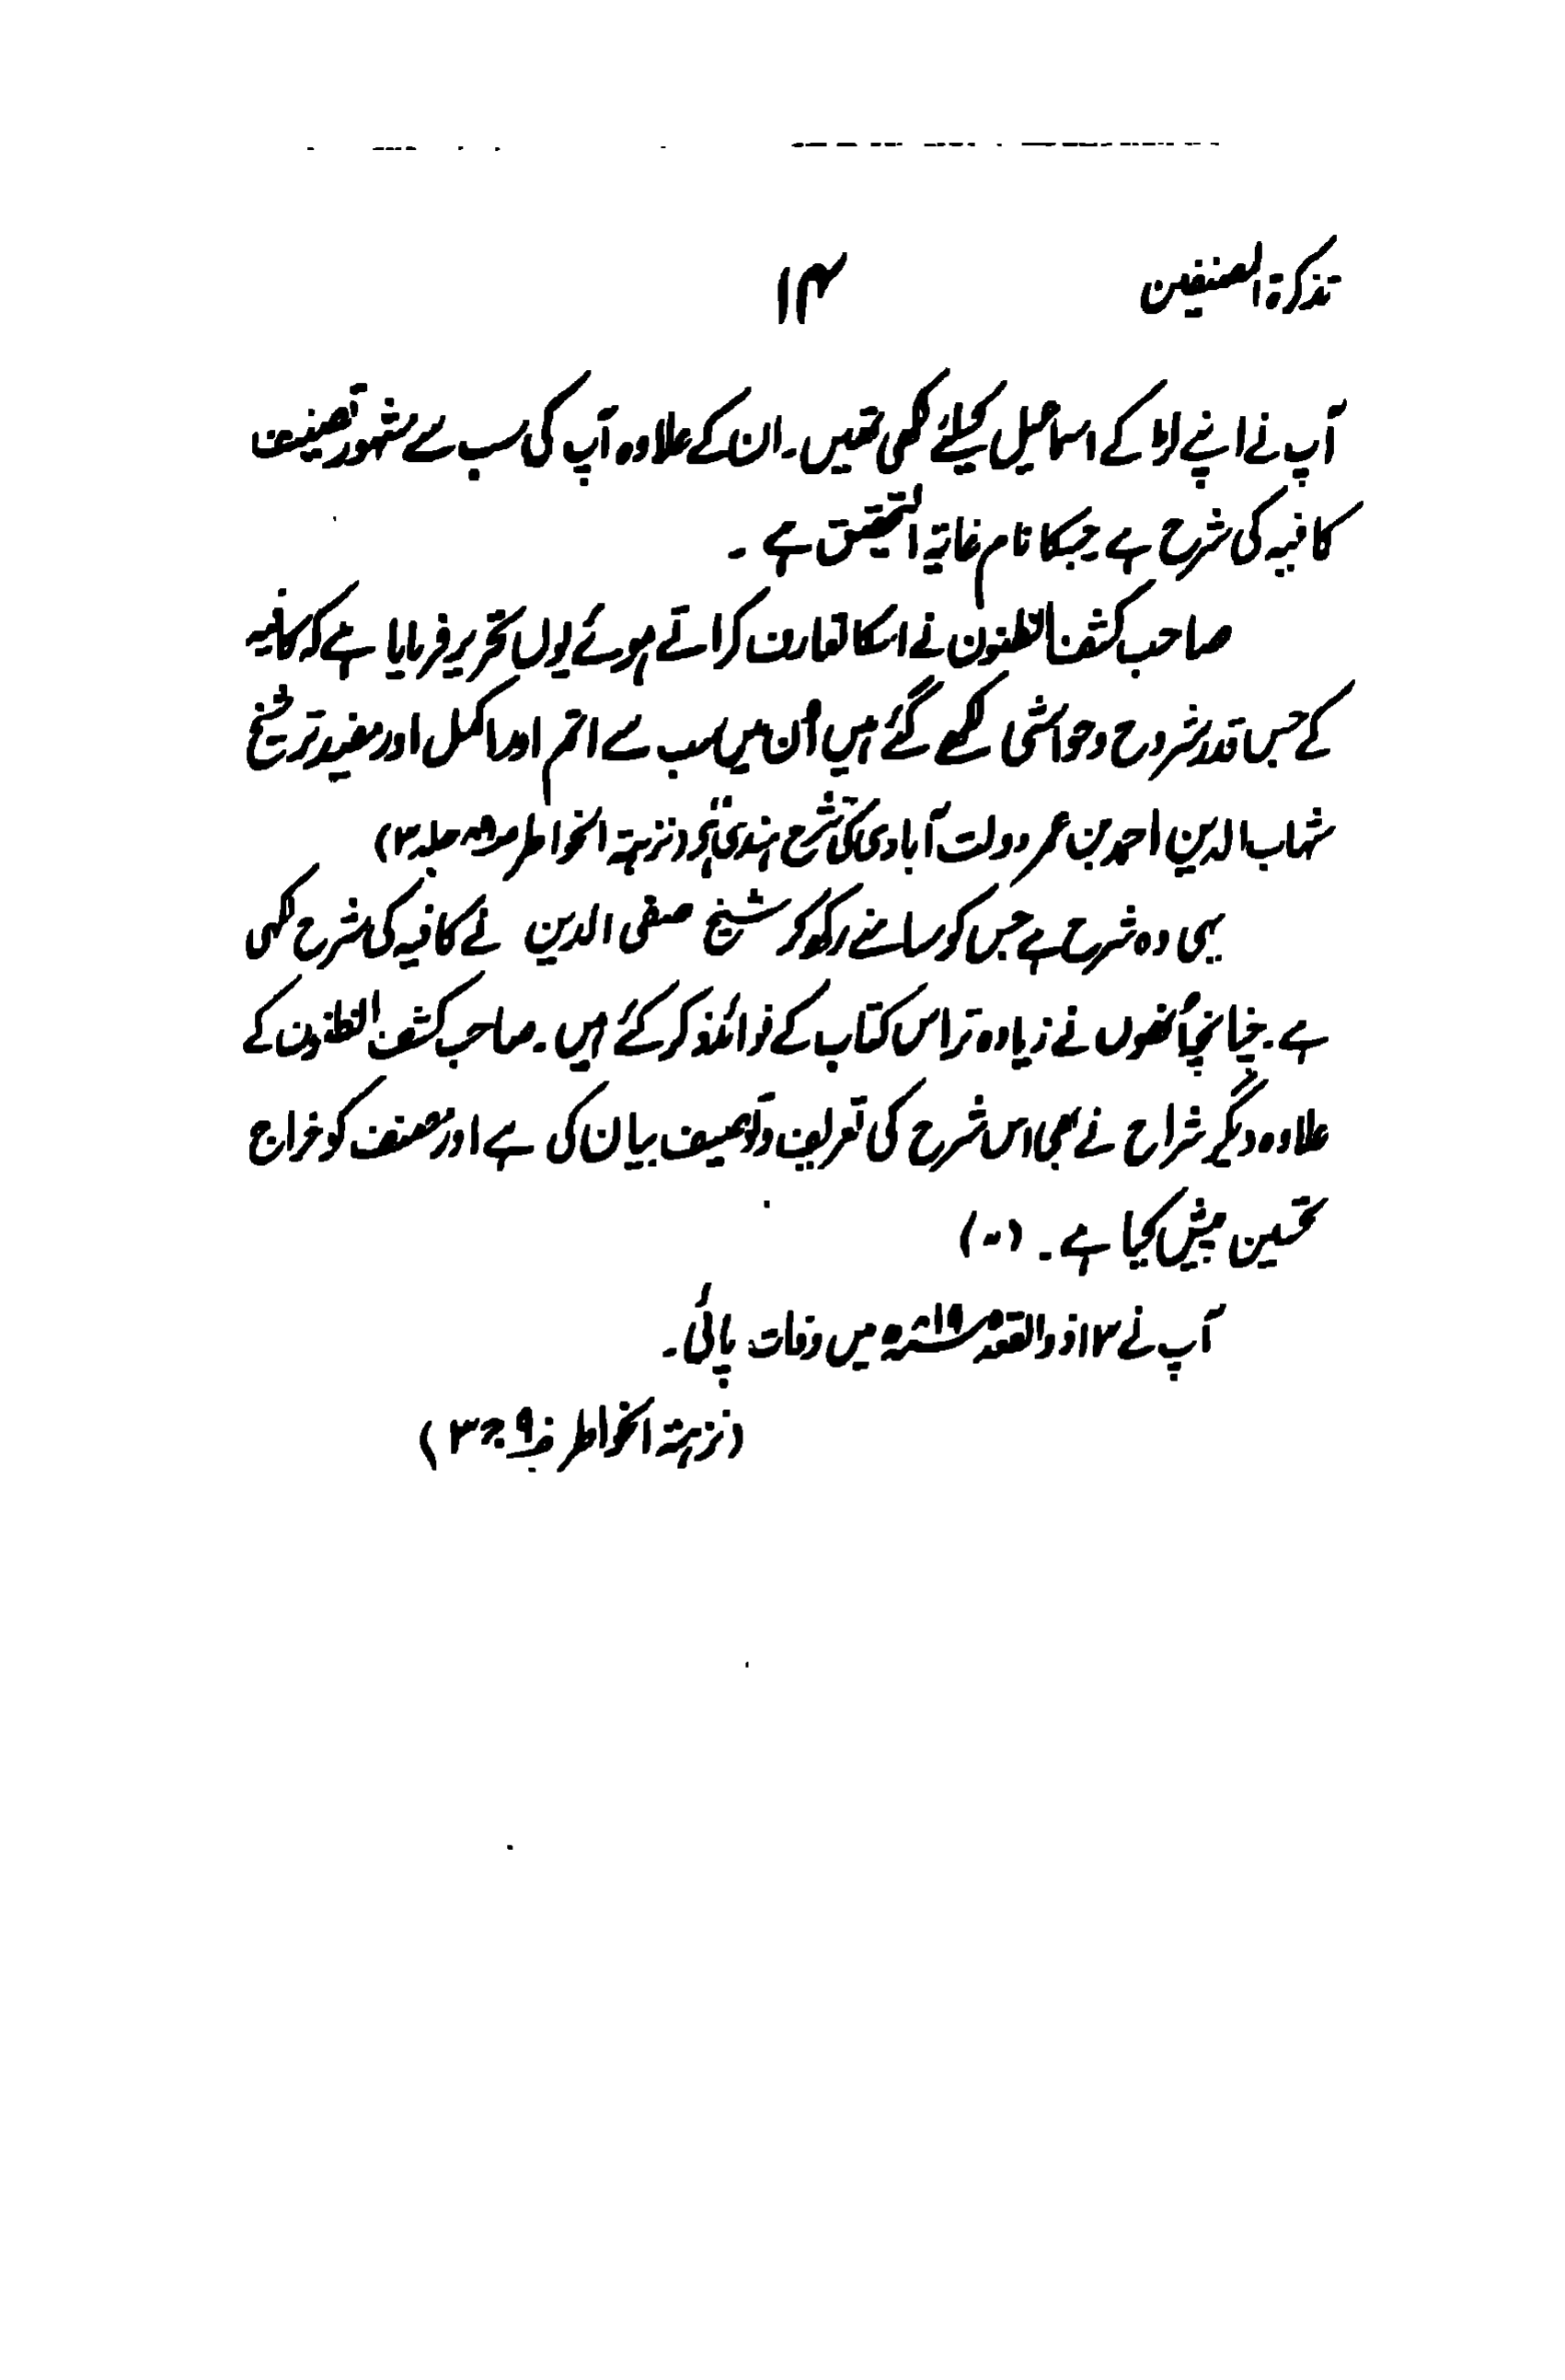 تذکرۃ المصنفین
۱۴
آپ نے اپنے لڑکے اسماعیل کیلئے لکھی تھیں۔ ان کے علاوہ آپ کی سب سے مشہور تصنیف
کافیہ کی شرح ہے جسکا نام غایۃ التحقیق ہے ۔
صاحب کشف الظنون نے اسکا تعارف کراتے ہوئے یوں تحریر فرمایا ہے کہ کافیہ
کے جس قدر شروح و حواشی لکھے گئے ہیں اُن میں سب سے اتم اور اکمل اور مفید تر شیخ
شہاب الدین احمد بن عمر دولت آبادی کی شرح ہندی ہے (نزہۃ الخواطر جلد ۳)
یہی وہ شرح ہے جس کو سامنے رکھ کر شیخ صفی الدین نے کافیہ کی شرح لکھی
ہے۔ چنانچہ اُنھوں نے زیادہ تر اس کتاب کے فوائد ذکر کئے ہیں۔ صاحب کشف الظنون کے
علاوہ دیگر شراح نے بھی اس شرح کی تعریف و توصیف بیان کی ہے اور مصنف کو خراج
تحسین پیش کیا ہے۔
آپ نے ۱۳ ذوالقعدہ ۸۱۹ھ میں وفات پائی۔
(نزہۃ الخواطر ج ۳)